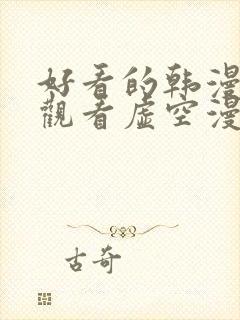 好看的韩漫
觀看虛空漫
古奇